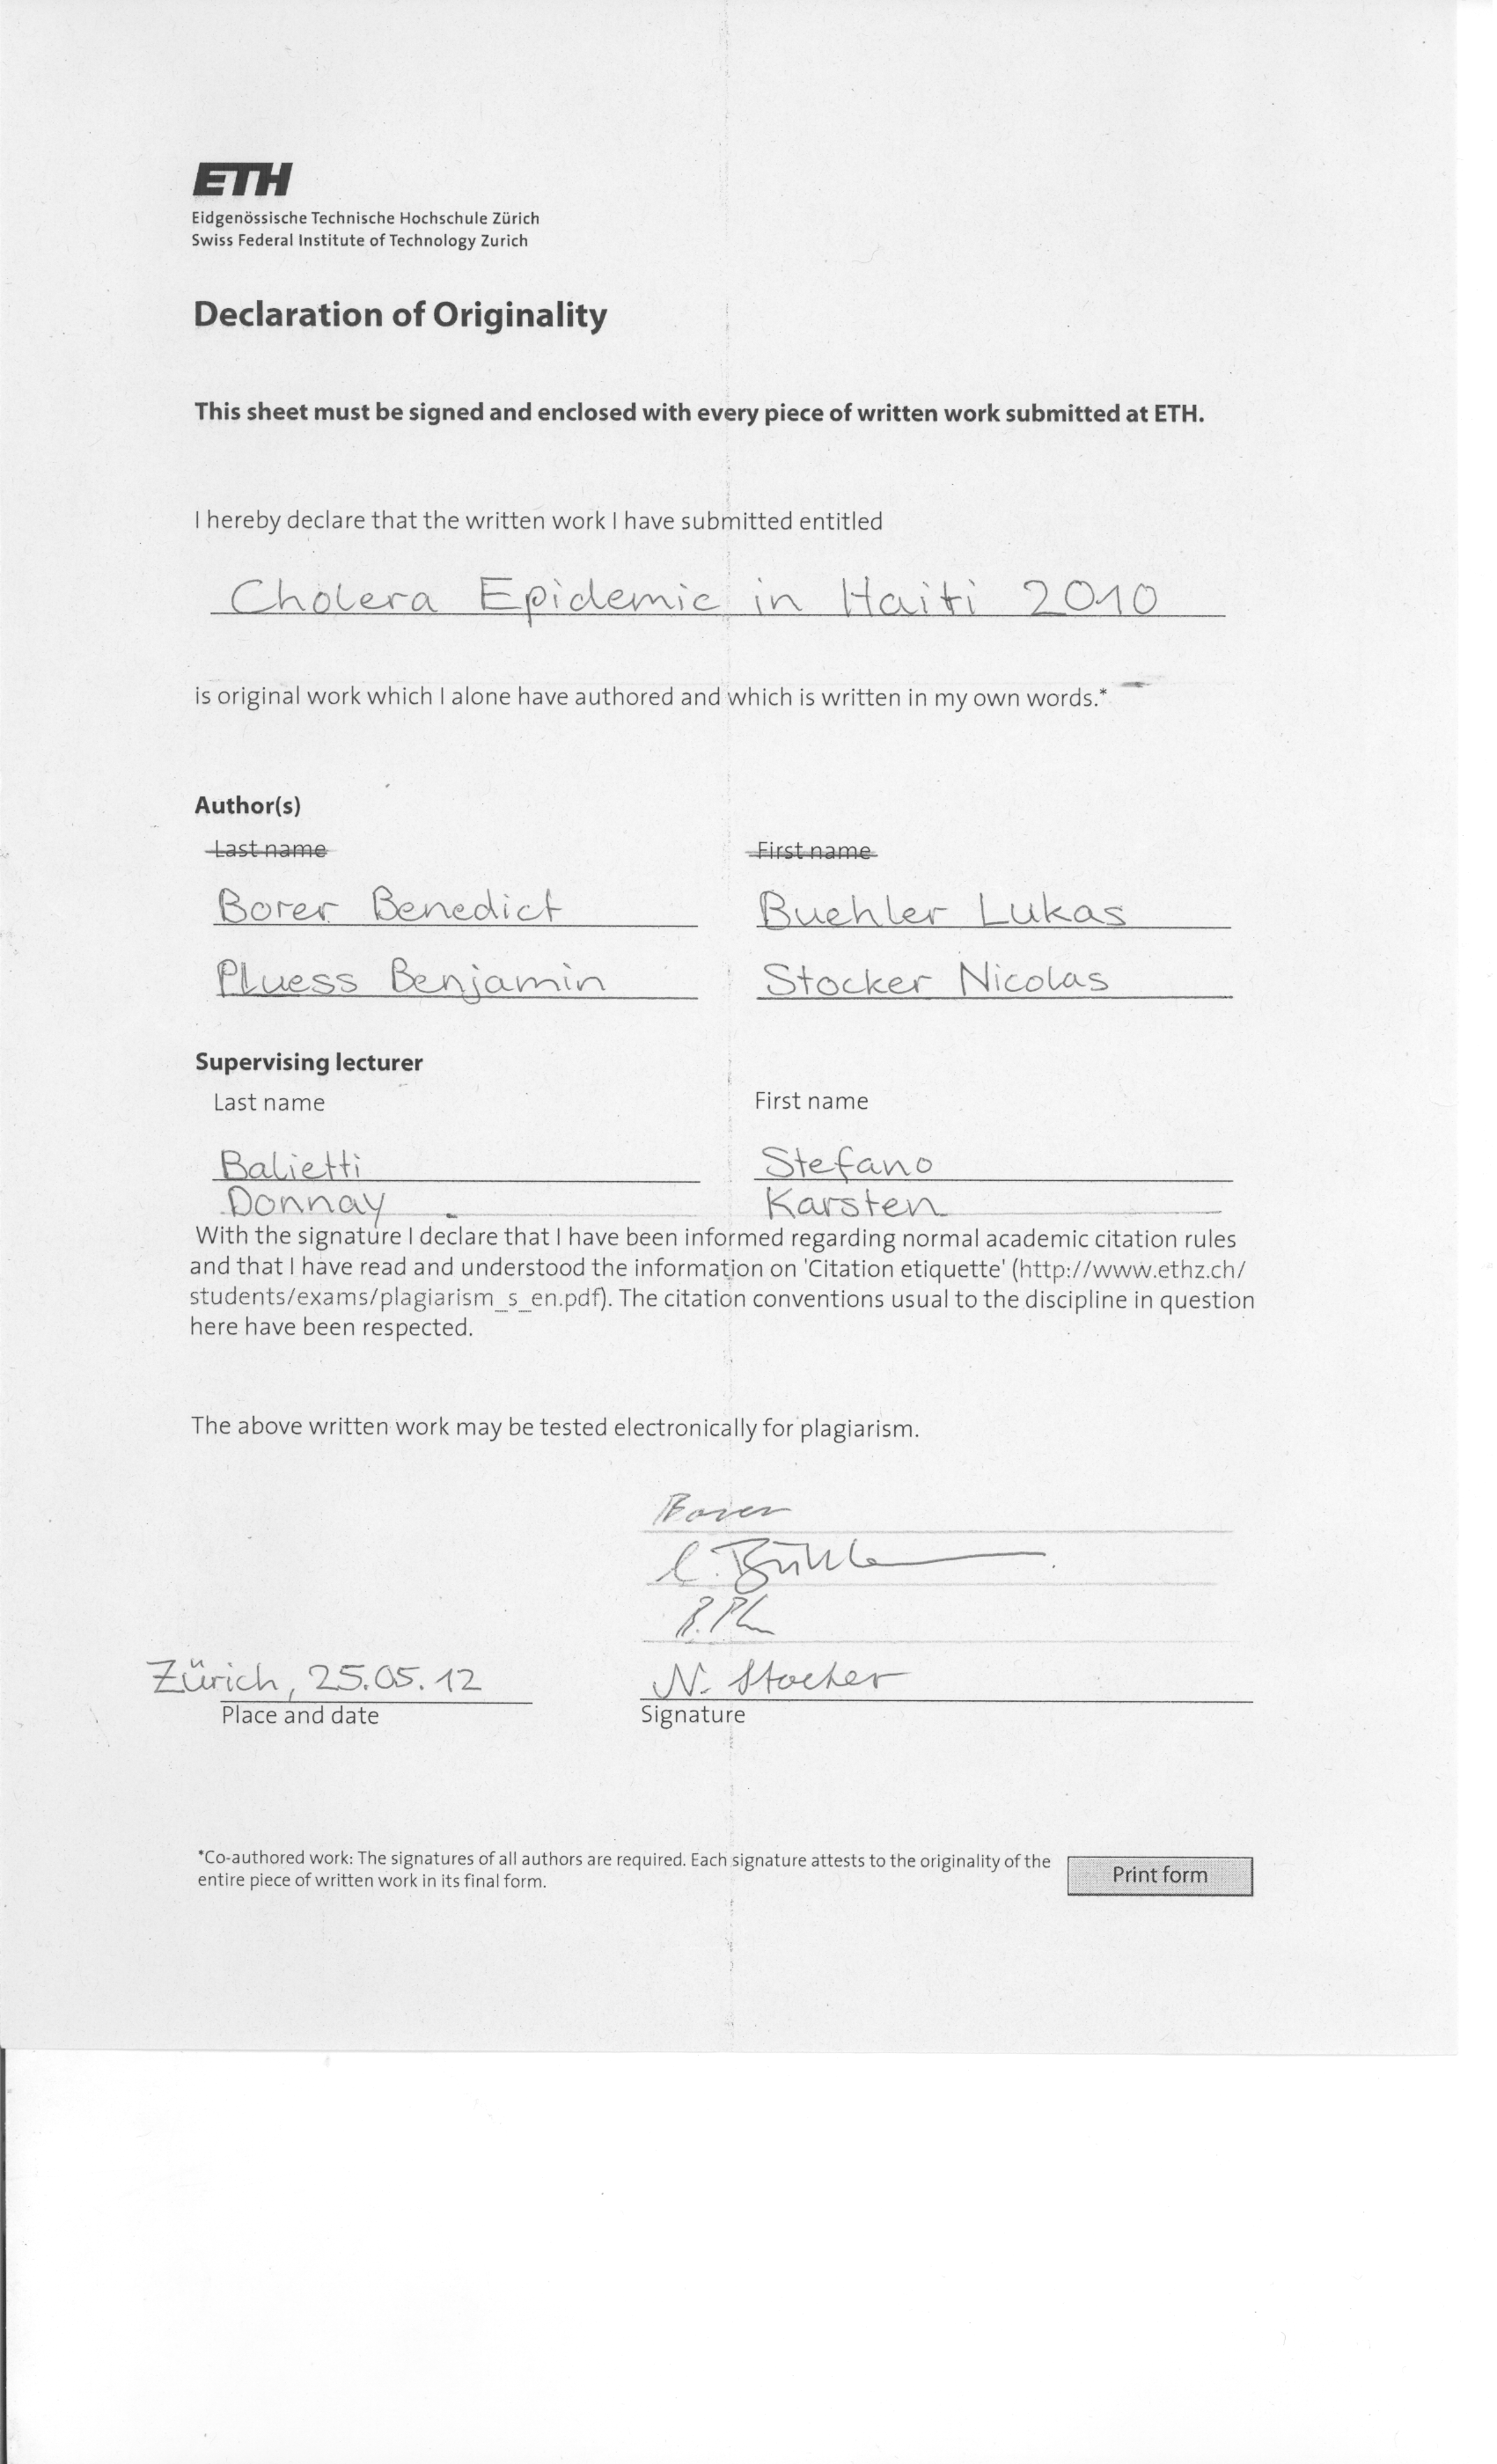 ETH
Eidgenössische Technische Hochschule Zürich
Swiss Federal Institute of Technology Zurich
Declaration of Originality
This sheet must be signed and enclosed with every piece of written work submitted at ETH.
I hereby declare that the written work I have submitted entitled
Cholera Epidemic in Haiti 2010
is original work which I alone have authored and which is written in my own words.*
Author(s)
Last name First name
Borer Benedict Buehler Lukas
Pluess Benjamin Stocker Nicolas
Supervising lecturer
Last name First name
Balietti Stefano
Donnay Karsten
With the signature I declare that I have been informed regarding normal academic citation rules
and that I have read and understood the information on 'Citation etiquette' (http://www.ethz.ch/
students/exams/plagiarism_s_en.pdf). The citation conventions usual to the discipline in question
here have been respected.
The above written work may be tested electronically for plagiarism.
Borer
L. Bühler
B. Pl
Zürich, 25.05.12 N. Stocker
Place and date Signature
*Co-authored work: The signatures of all authors are required. Each signature attests to the originality of the
entire piece of written work in its final form.
Print form